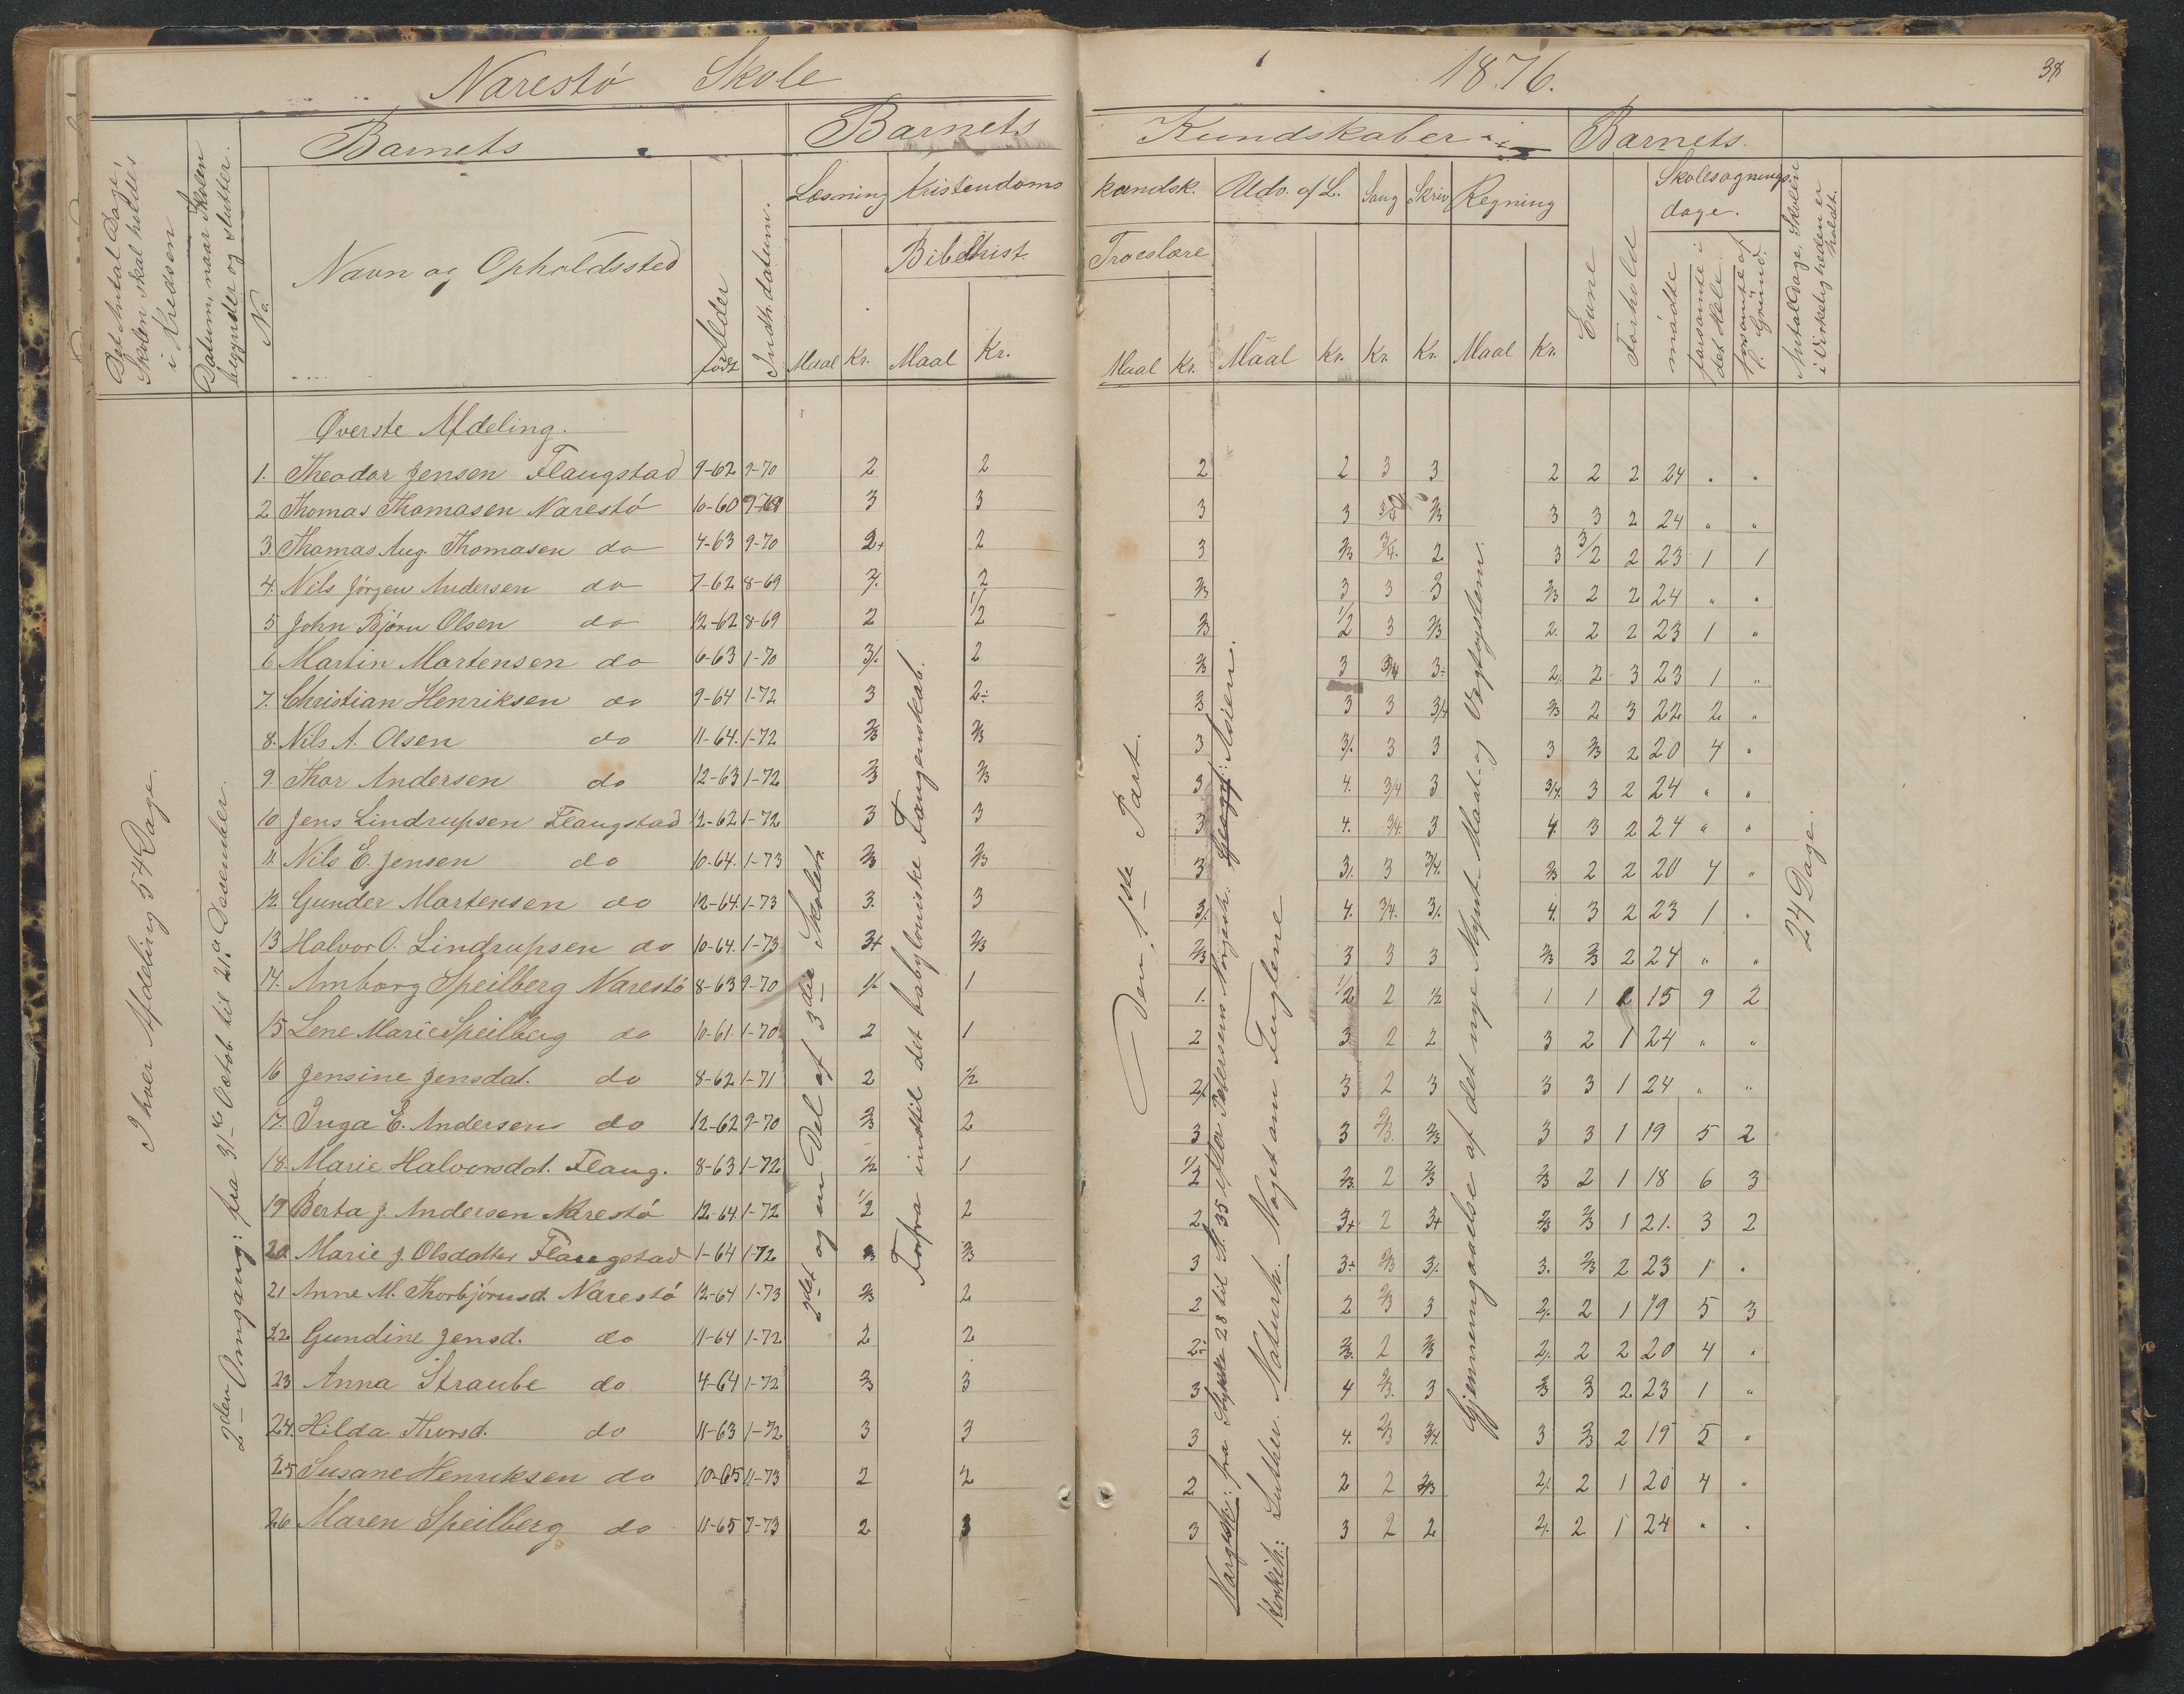 Narestö Skole
1876.
Barnets
Barnets
Kundskaber i
Barnets.
Det Antal Dage, Skolen skal holdes i Kredsen
Datum, naar Skolen begynder og slutter.
No.
Navn og Opholdssted
Alder
født
Indtr. datum.
Læsning
Kristendoms
kundsk.
Udv. af L.
Sang
Skriv
Regning
Evne
Forhold
Skolesøgnings-
dage.
Bibelhist.
Troeslære
mødte
forsømte i det Hele
forsømte af l. Grund.
Antal Dage, Skolen i Virkeligheden er holdt.
Maal Kr. Maal Kr.
Maal Kr. Maal Kr. Kr. Kr. Maal Kr.
I hver Afdeling 54 Dage.
2den Omgang: fra 31te Octob. til 21. Decemher.
2det og en Del af 3die Skoletr.
Forfra indtil det babyloniske Fangenskab.
Den 1ste Part.
Norgesh.: fra Stykke 28 til St. 35 efter Petersens Norgesh. Geograf: Asien.
Kirkeh.: Luther. Naturh. Noget om Fuglene
Gjennemgaaelse af det nye Mynt- Maal- og Vegtsystem.
24 Dage.
Øverste Afdeling.
1. Theodor Jensen Flaugstad 9-62 9-70 2 2 2 2 3 3 2 2 2 24 " "
2 Thomas Thomasen Narestö 10-60 3 3 3 3 2/3 3 3 2 24 " "
3 Thomas Aug. Thomasen do 4-63 9-70 2+ 2 3 2/3 3/4. 2 3 3/2 2 23 1 1
4. Nils Jörgen Andersen do 7-62 8-69 2 2/3 3 3 3 2/3 2 2 24 " "
5 John Björn Olsen do 12-62 8-69 2 1/2 2/3 1/2 3 2/3 2. 2 2 23 1 "
6 Martin Martensen do 6-63 1-70 3/. 2 2/3 3 3/4 3÷ 2/. 2 3 23 1 "
7. Christian Henriksen do 9-64 1-72 3 2÷ 3 3 3 3/4 2/3 2 3 22 2 "
8. Nils A. Olsen do 11-64. 1-72 2/3 2/3 3 3/. 3 3 3 2/3 2 20 4 "
9. Thor Andersen do 12-63 1-72 2/3 2/3 3 4. 3/4 3 3/4. 3 2 24 " "
10 Jens Lindrupsen Flaugstad 12-62 1-72 3 3 3 4. 3/4 3 4. 3 2 24 " "
11. Nils E. Jensen do 10-64. 1-73 2/3 2/3 3 3/. 3 3/4. 2/3 2 2 20 4 "
12. Gunder Martensen do 12-64. 1-73 3. 3 3/. 4. 3/4. 3/. 4. 3 2 23 1 "
13 Halvor O. Lindrupsen do 10-64. 1-73 3+ 2/3 2/3 3 3 3 2/3 2/3 2 24 " "
14. Amborg Speilberg Narestö 8-63 9-70 1/. 1 1. 1/2 2 1/2 1 1 2 15 9 2
15 Lene Marie Speilberg do 10-61. 1-70 2 1 2 3 2 2 3 2 1 24 " "
16 Jensine Jensdat. do 8-62 1-71 2 1/2 2/. 3 2 3 3 3 1 24 " "
17. Inga E. Andersen do 12-62 9-70 2/3 2 3 3 2/3. 2/3 3 3 1 19 5 2
18. Marie Halvorsdat. Flaug. 8-63 1-72 1/2 1 1/2 2/3. 2 2/3 2/3 2 1 18 6 3
19 Berta J. Andersen Narestö 12-64. 1-72 1/2 2 2 3+ 2 3+ 2/3 2/3 1 21. 3 2
20 Marie J. Olsdatter Flaugstad 1-64 1-72 3 2/3 3 3÷ 2/3 3/. 3. 2/3 2 23 1 "
21 Anne M. Thorbjörnsd. Narestö 12-64 1-73 2/3 2 2 2 2/3 3 2/. 2 1 19 5 3
22. Gundine Jensd. do 11-64 1-72 2 2 2÷ 2/3. 2 2/3 2/. 2 2 20 4 "
23 Anna Straube do 4-64 1-72 2/3 3 3 4 2/3. 3 2/3 3 2 23 1 "
24. Hilda Thorsd. do 11-63 1-72 3 3 3 4. 2/3 3/4. 3 2/3 2 19 5 "
25 Susane Henriksen do 10-65 11-73 2 2 2 2 2 2/3 2/. 2 1 20 4 "
26 Maren Speilberg do 11-65 7-73 2 3 3 3 2 2 2/. 2 1 24 " "